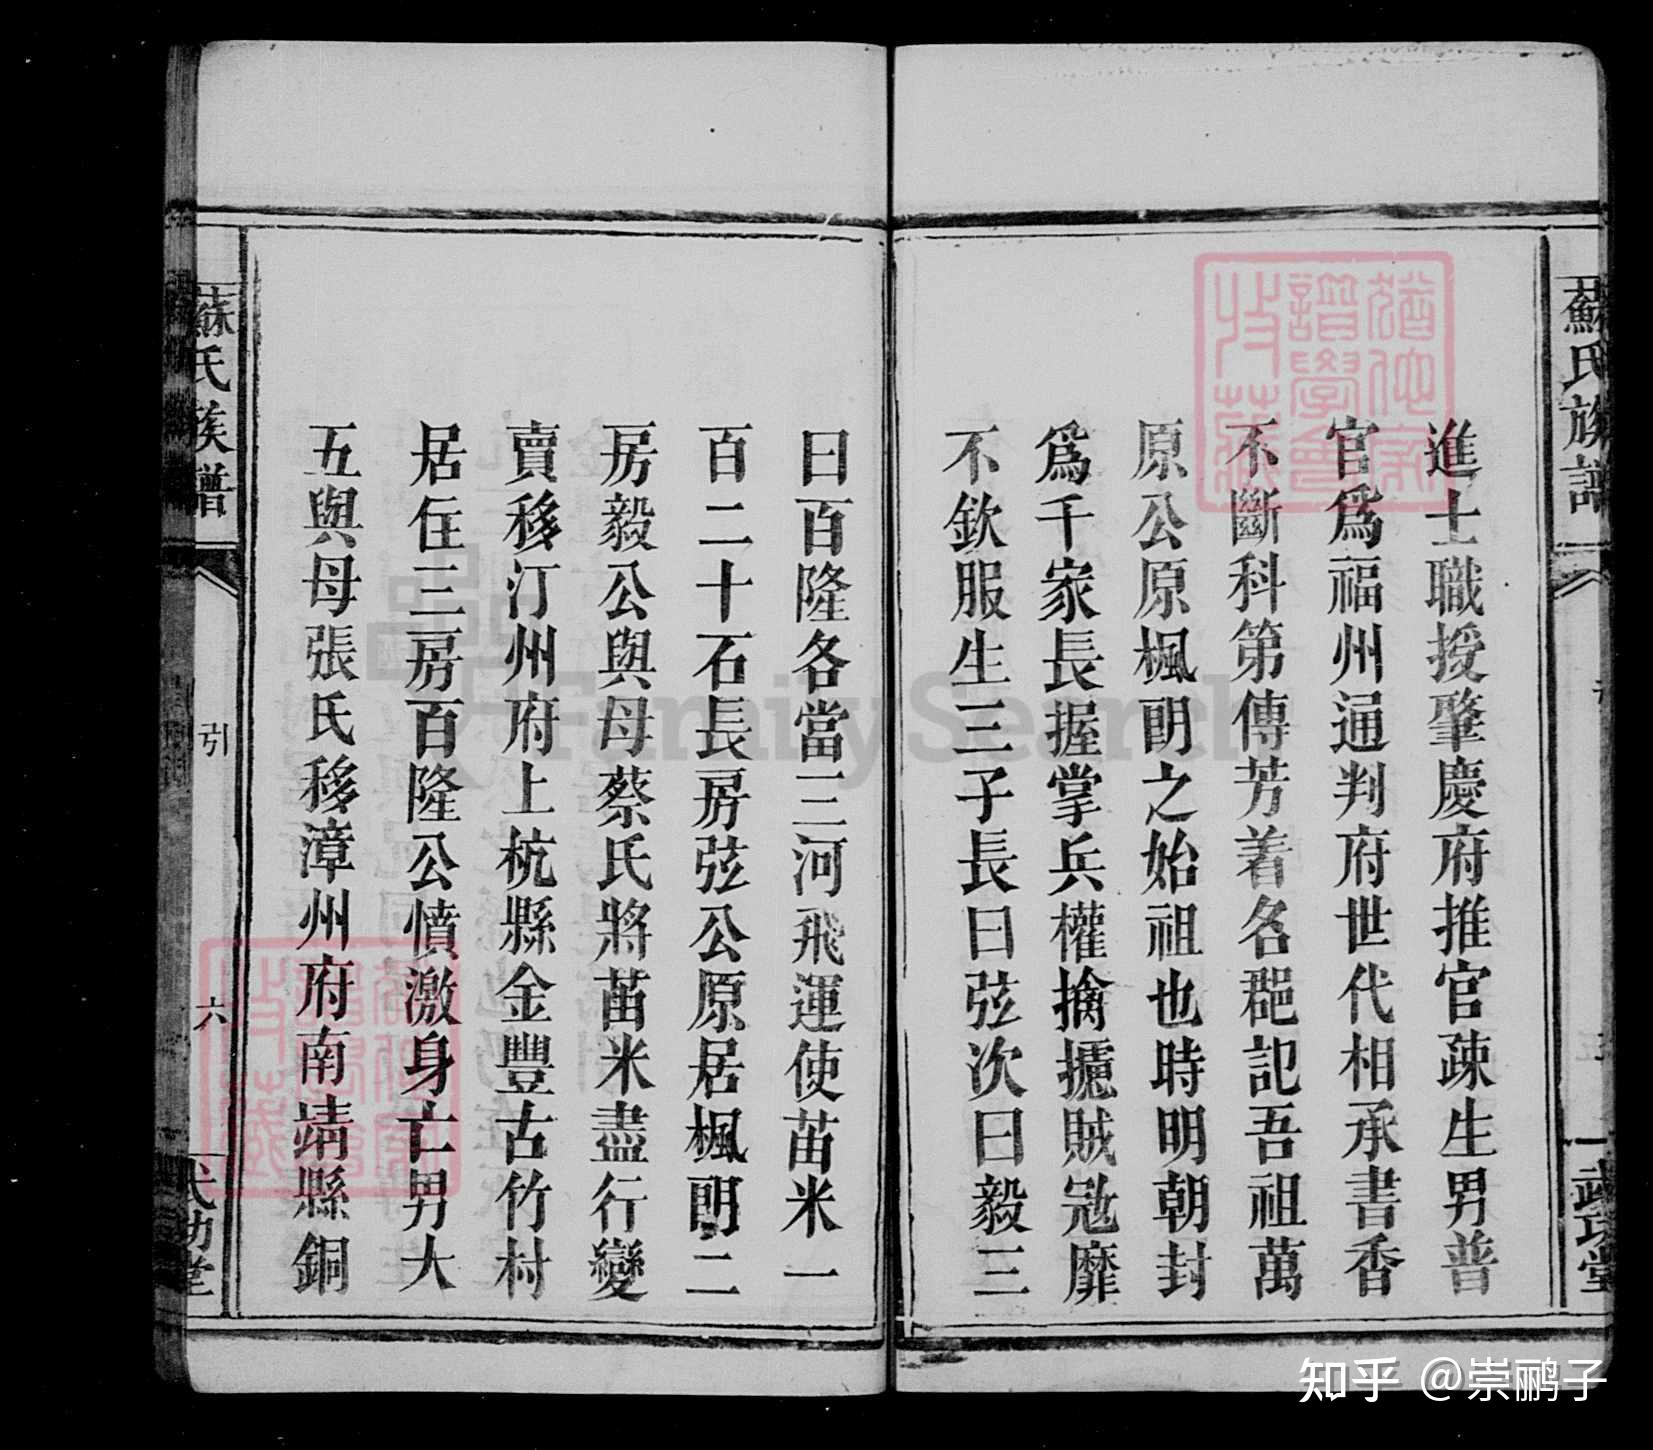 蘇氏族譜
武功堂
進士職授肇慶府推官疎生男普
官爲福州通判府世代相承書香
不斷科第傳芳着名郡記吾祖萬
原公原楓朗之始祖也時明朝封
爲千家長握掌兵權擒攄賊冦靡
不欽服生三子長曰弦次曰毅三
曰百隆各當三河飛運使苗米一
百二十石長房弦公原居楓朗二
房毅公與母蔡氏將苗米盡行變
賣移汀州府上杭縣金豐古竹村
居住三房百隆公憤激身亡男大
五與母張氏移漳州府南靖縣銅
蘇氏族譜
引
六
武功堂
FamilySearch
知乎 @崇鹂子